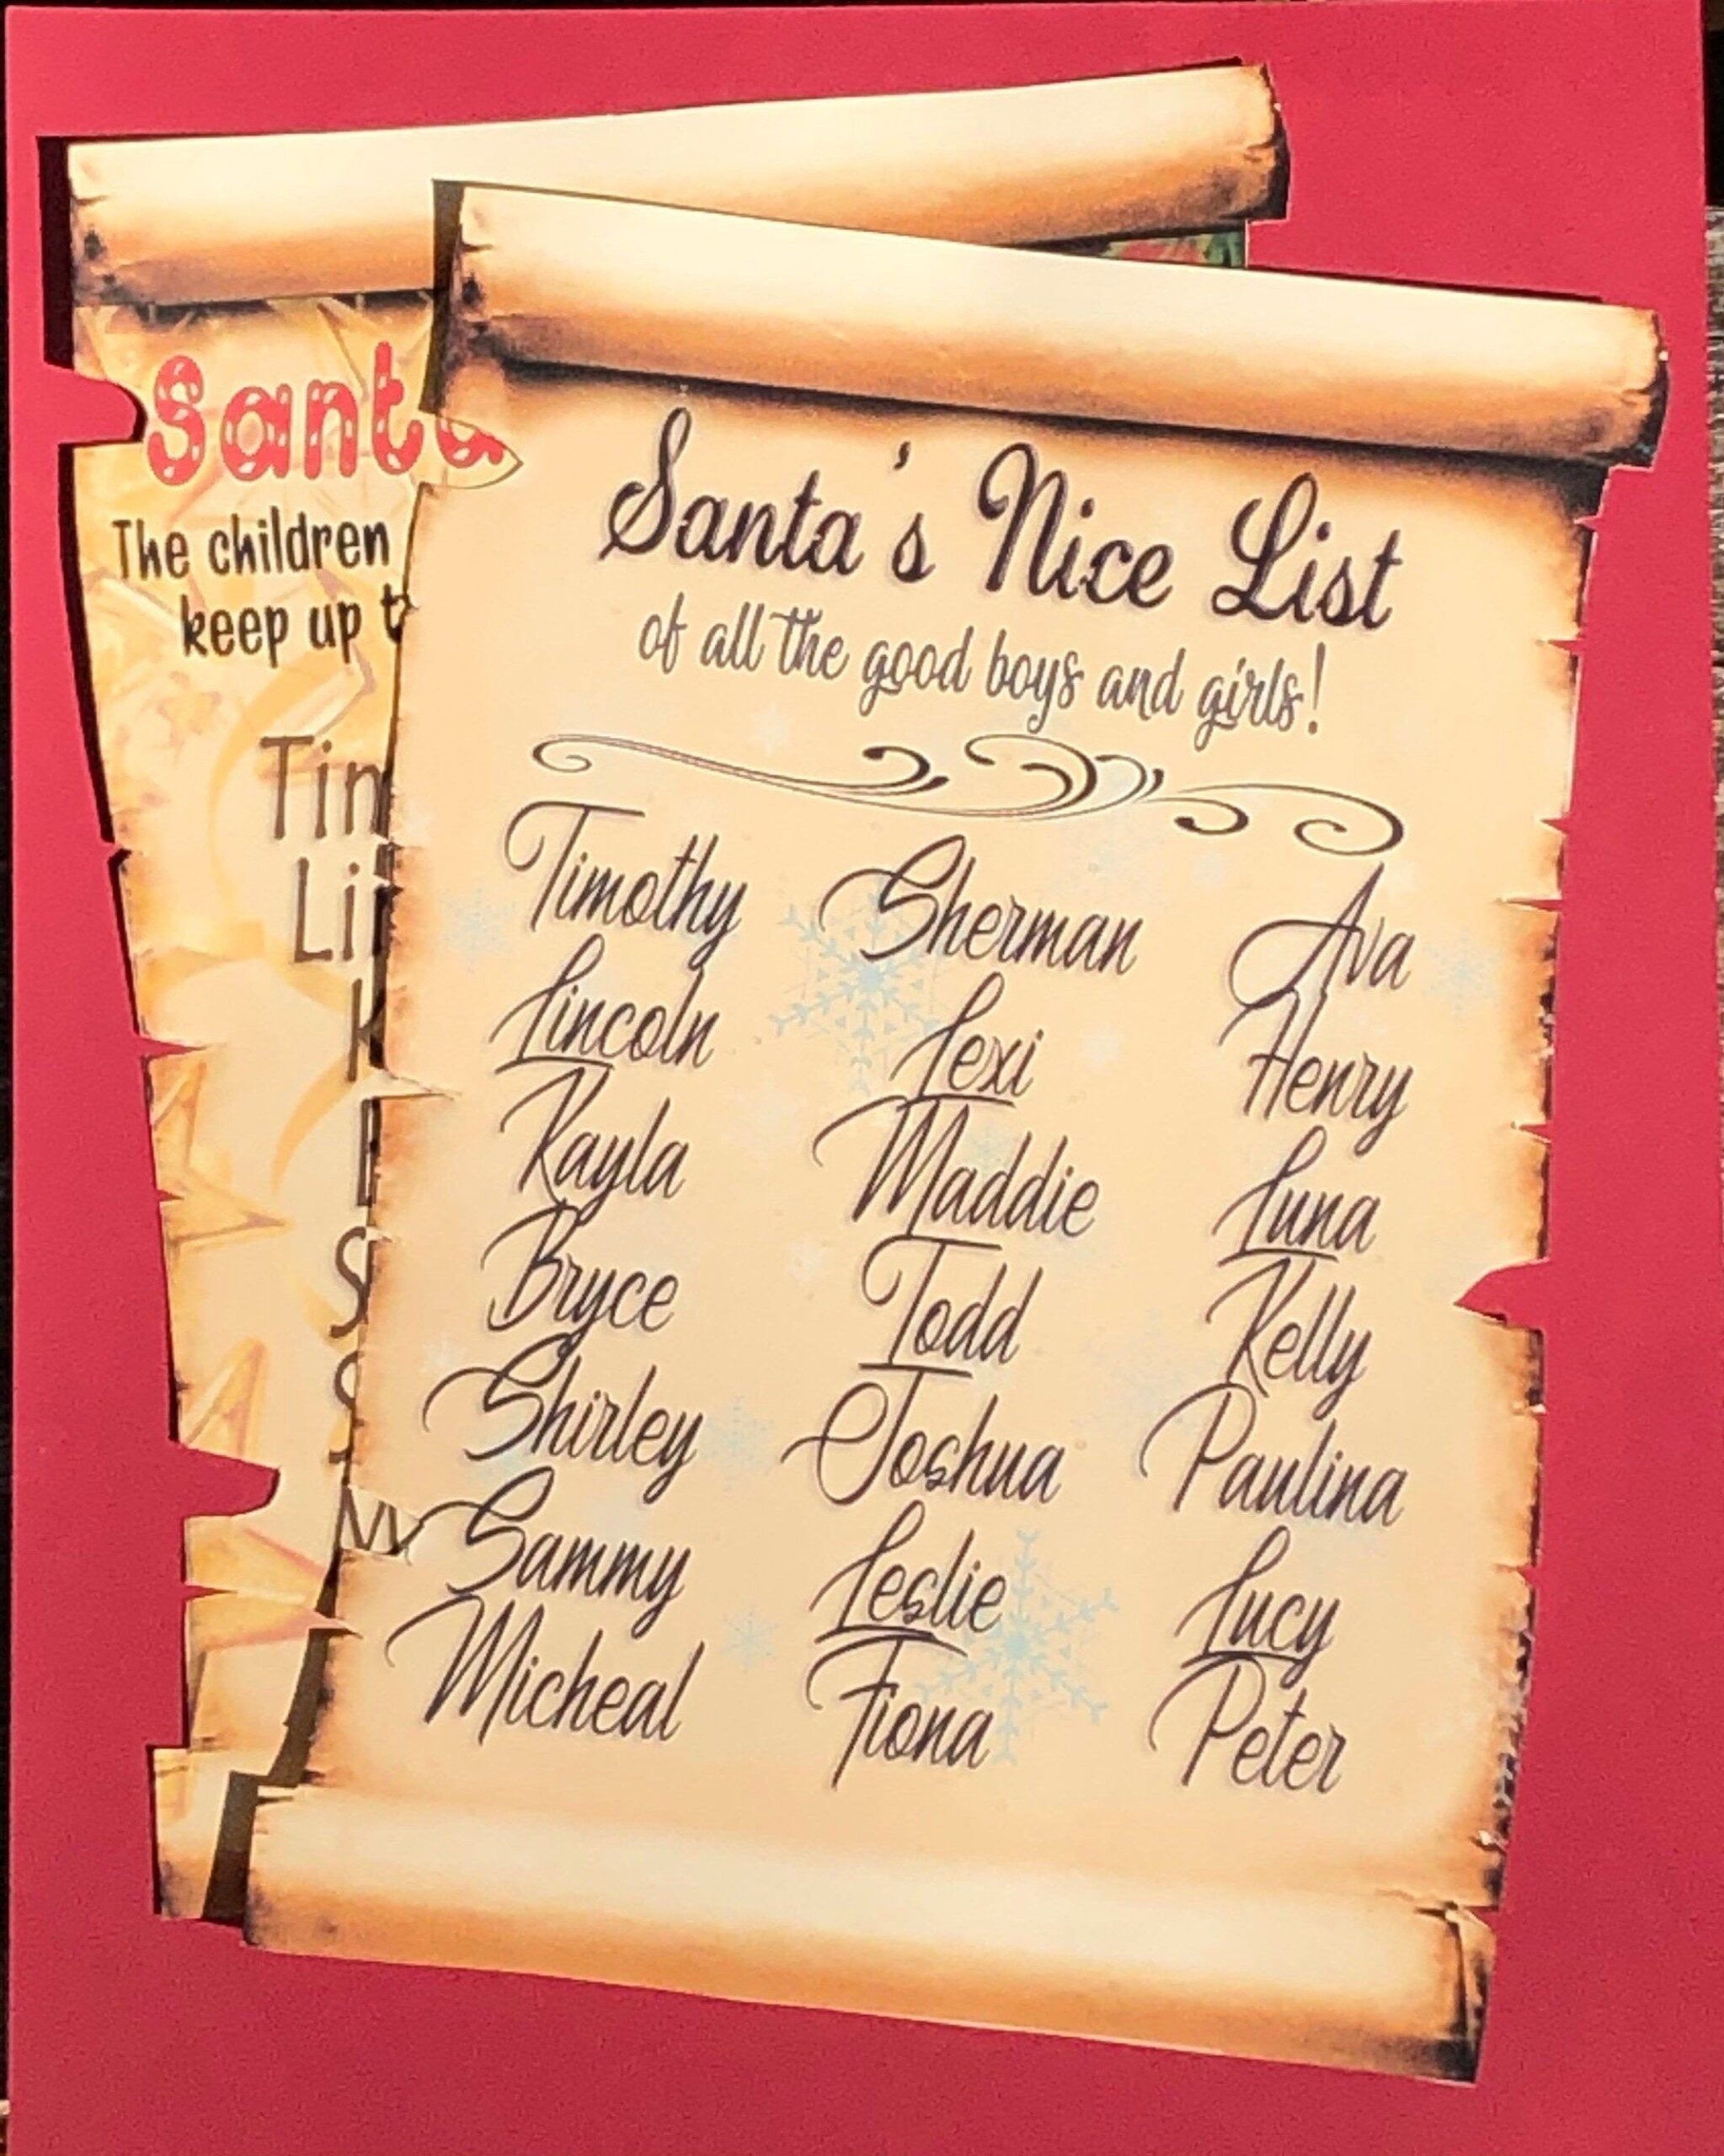 Santa
The children
keep up
Santa's Nice List
of all the good boys and girls!
Timothy Sherman Ava
Lincoln Lexi Henry
Kayla Maddie Luna
Bryce Todd Kelly
Shirley Joshua Paulina
Sammy Leslie Lucy
Micheal Fiona Peter